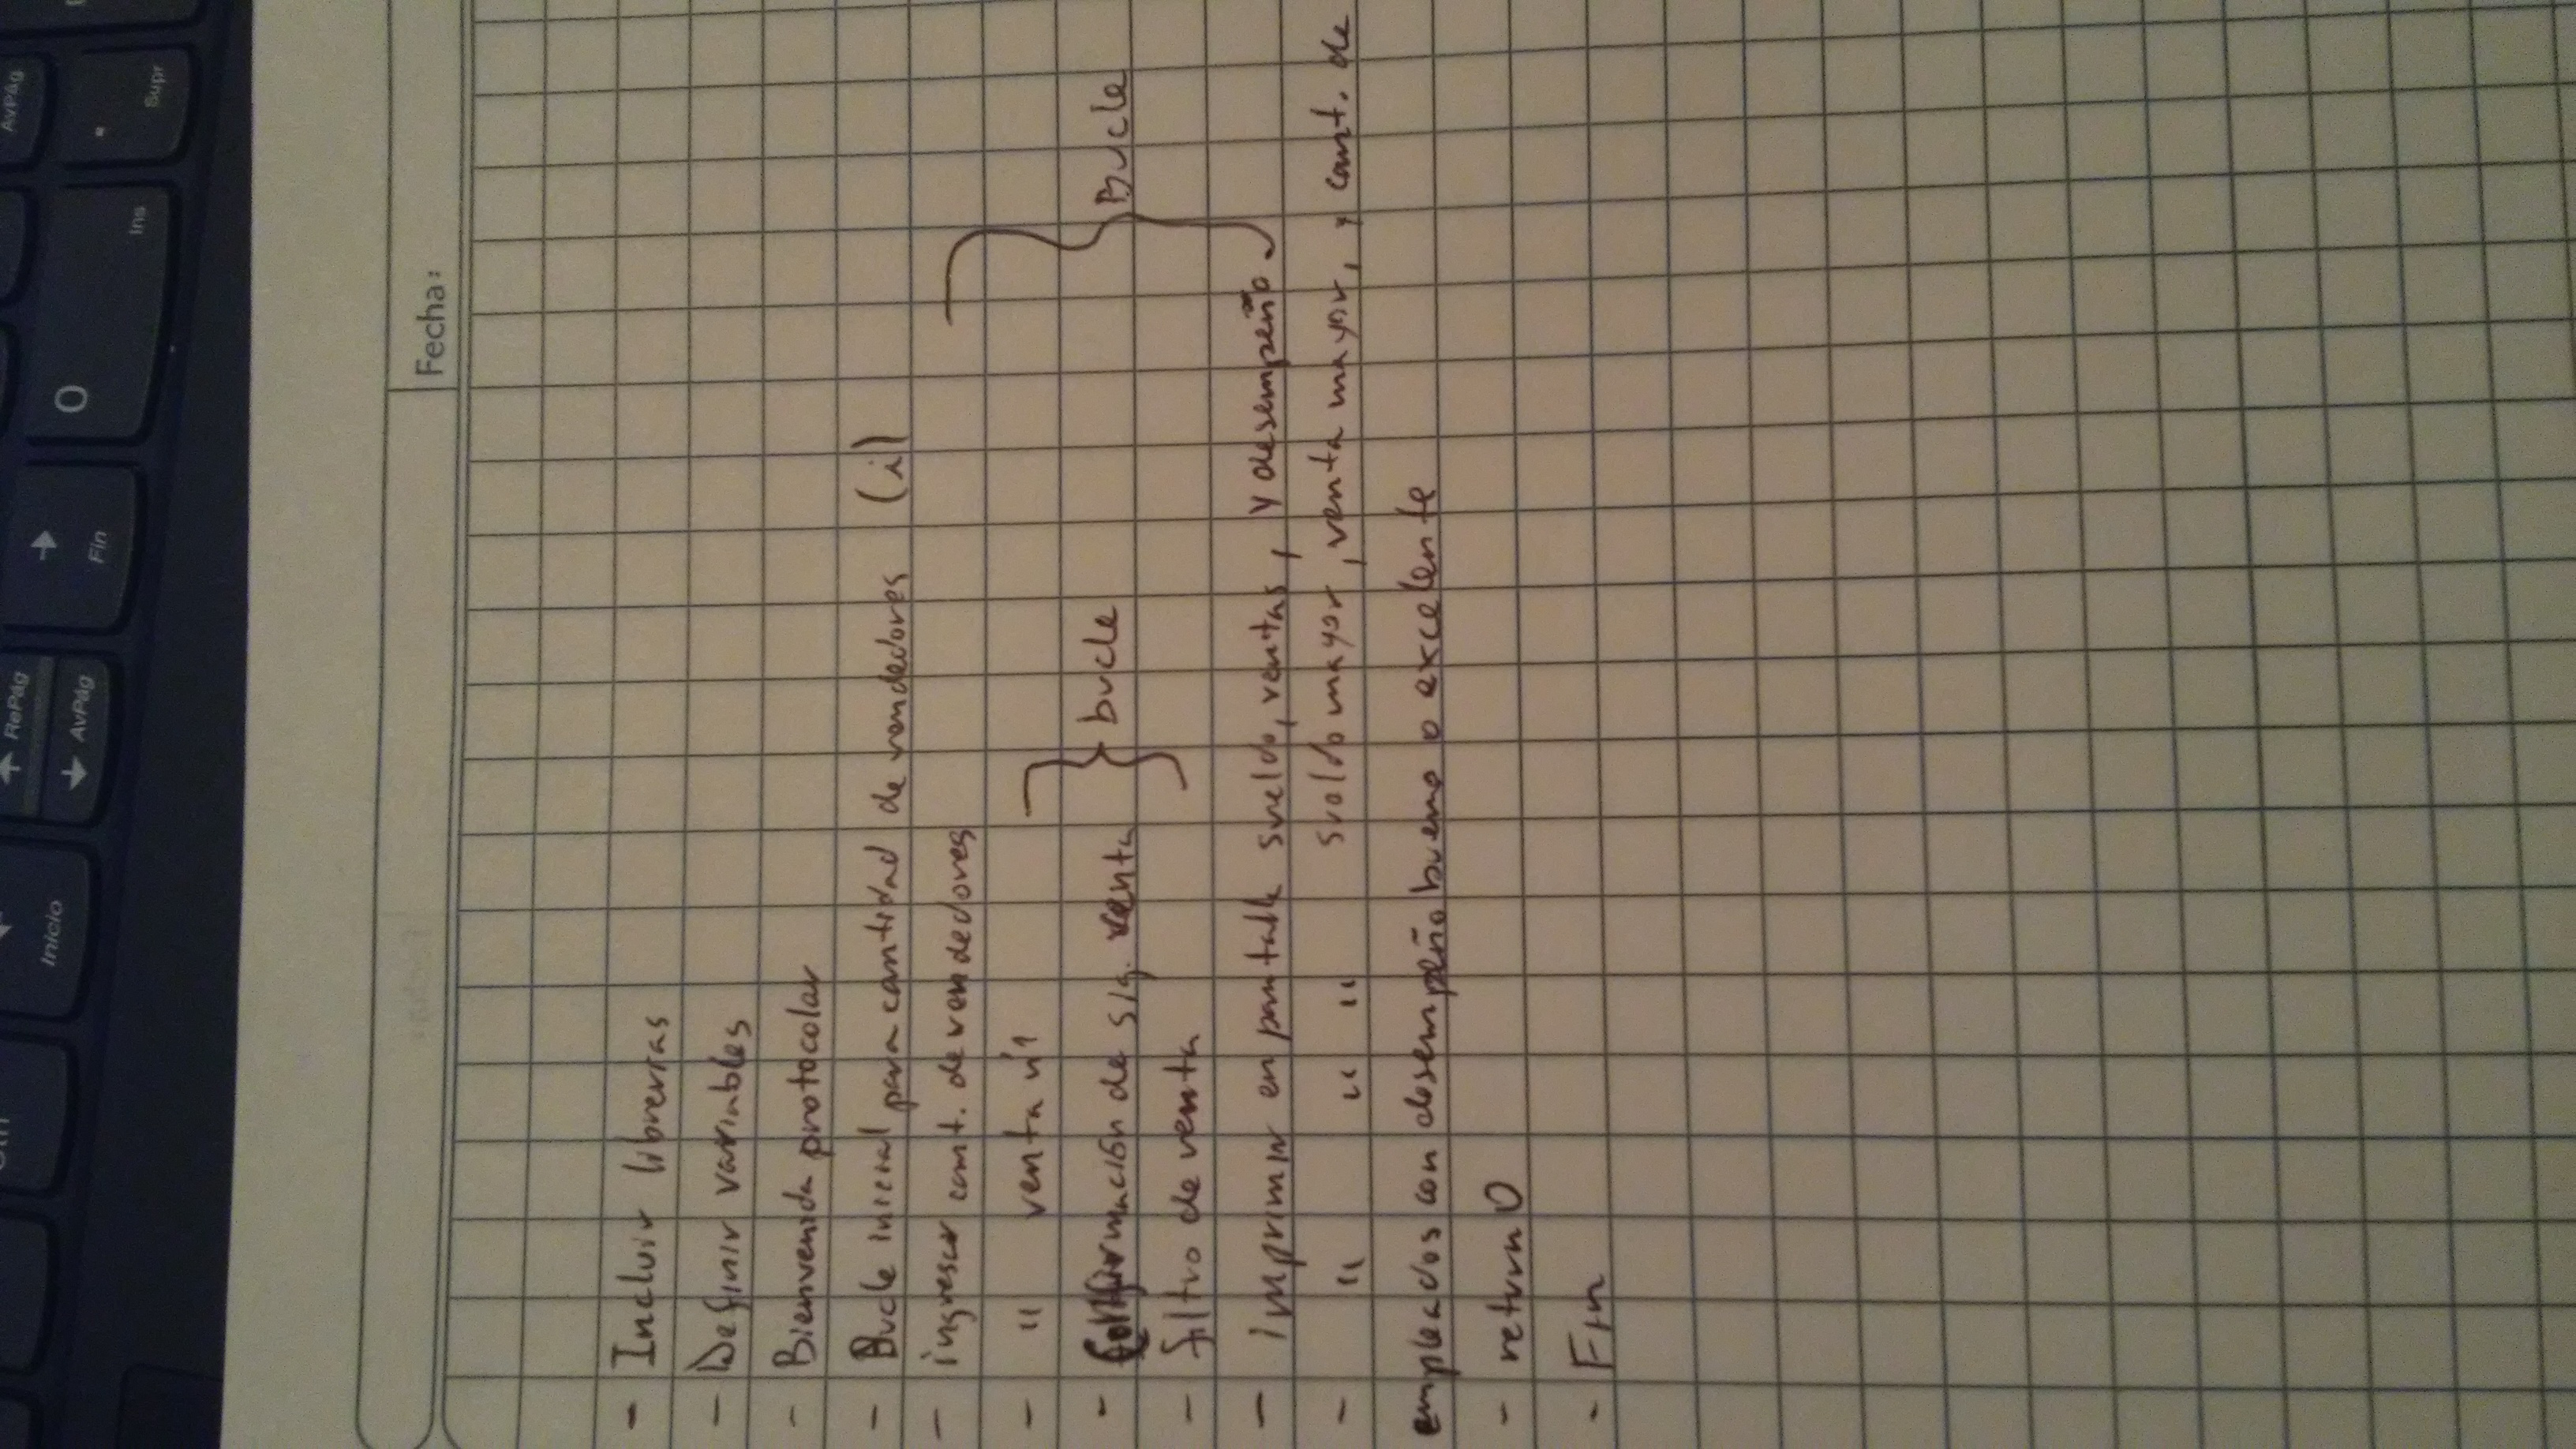 Inicio
RePág
AvPág
Fin
0
Ins
AvPág
Supr
Fecha:
- Incluir librerias
- Definir variables
- Bienvenida protocolar
- Bucle inicial para cantidad de vendedores (i)
- ingresar cant. de vendedores
- " venta n°1
- Confirmación de sig. venta } bucle } Bucle
- filtro de venta
- imprimir en pantalla sueldo, ventas, y desempeño
- " " " sueldo mayor, venta mayor, y cant. de
empleados con desempeño bueno o excelente
- return 0
- Fin